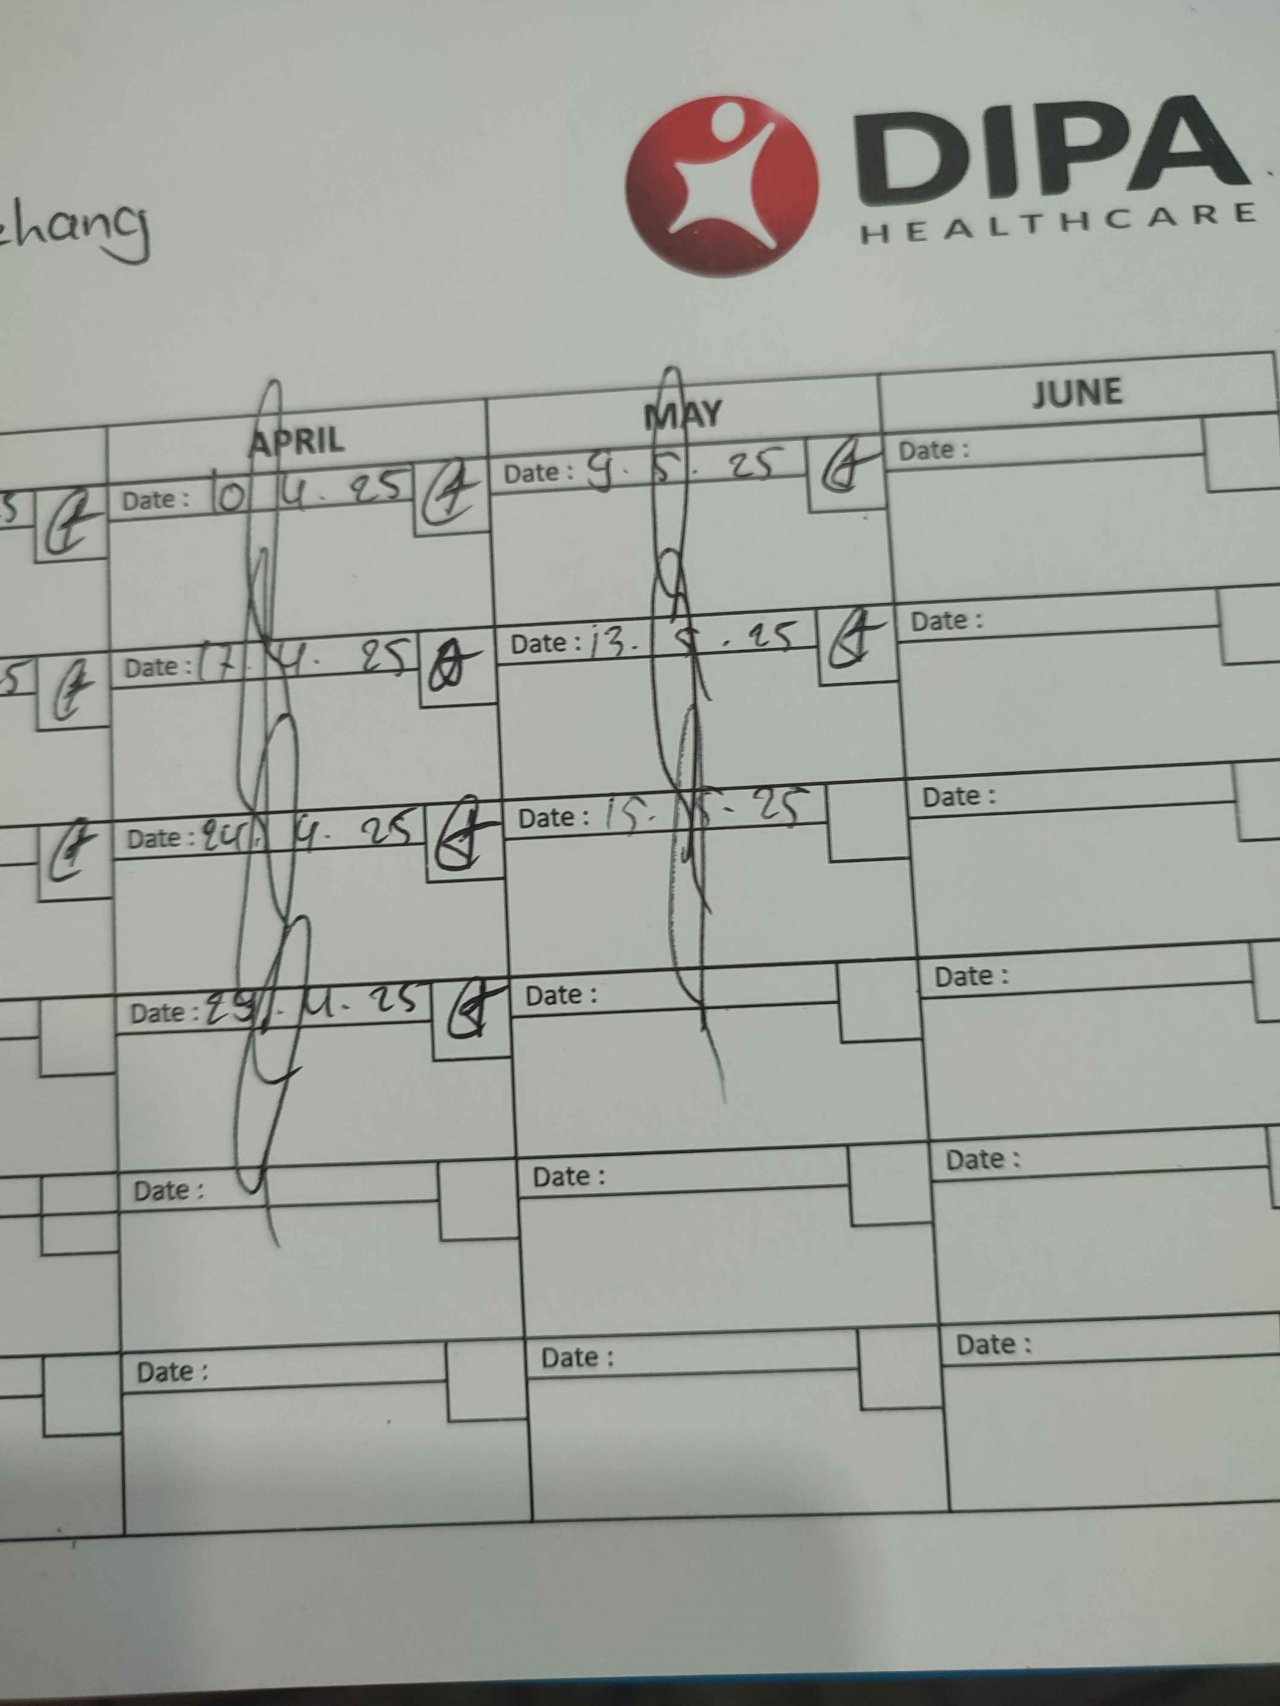 DIPA
HEALTHCARE
ehang
APRIL MAY JUNE
5 Date : 10 4. 25 Date : 9. 5. 25 Date :
5 Date : 17. 4. 25 Date : 13. 5. 25 Date :
Date : 24. 4. 25 Date : 15. 5. 25 Date :
Date : 29. 4. 25 Date : Date :
Date : Date : Date :
Date : Date : Date :